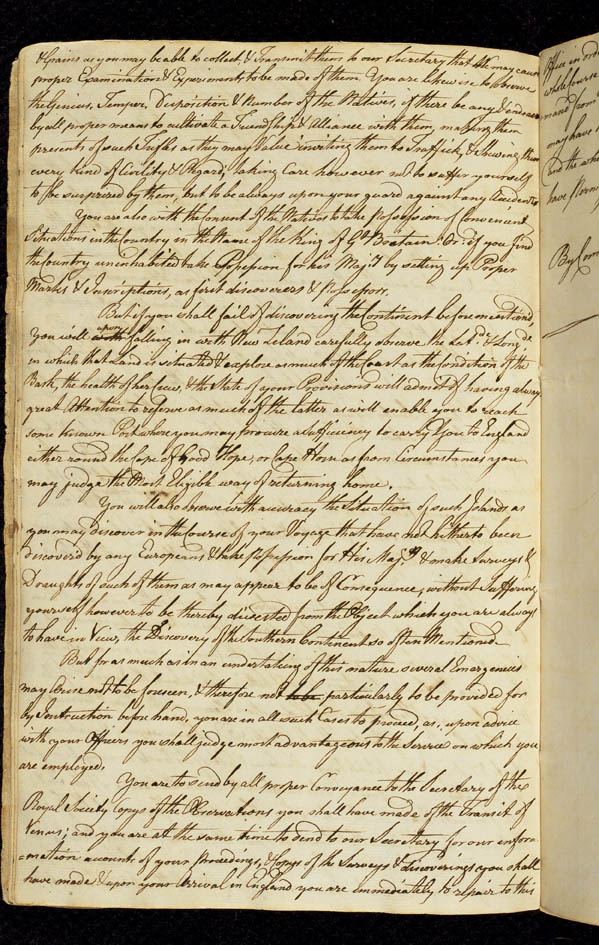 & Grains as you may be able to collect, & Transmit them to our Secretary that We may cause
proper Examination & Experiments to be made of them. You are likewise to observe
the Genius, Temper, Disposition & Number of the Natives, if there be any & endeavour
by all proper means to cultivate a Friendship & Alliance with them, making them
presents of such Trifles as they may Value inviting them to Traffick, & Shewing them
every kind of Civility & Regard; taking Care however not to suffer yourself
to be surprized by them, but to be always upon your guard against any Accidents
You are also with the Consent of the Natives to take Possession of Convenient
Situations in the Country in the Name of the King of Gt Britain: Or: if you find
the Country uninhabited take Possession for his Majy by setting up Proper
Marks & Inscriptions, as first discoverers & possessors.
But if you shall fail of discovering the Continent beforemention'd,
you will upon falling in with New Zeland carefully observe the Latde & Longde
in which that Land is situated & explore as much of the Coast as the Condition of the
Bark, the health of her Crew, & the State of your Provisions will admit of having always
great Attention to reserve as much of the latter as will enable you to reach
some known Port where you may procure a Sufficiency to carry You to England
either round the Cape of Good Hope, or Cape Horn as from Circumstances you
may judge the Most Eligible way of returning home.
You will also observe with accuracy the Situation of such Islands as
you may discover in the Course of your Voyage that have not hitherto been
discover'd by any Europeans & take Possession for His Majy & make Surveys &
Draughts of such of them as may appear to be of Consequence, without Suffering
yourself however to be thereby diverted from the Object which you are always
to have in View, the Discovery of the Southern Continent so often Mentioned.
But for as much as in an undertaking of this nature several Emergencies
may Arise not to be foreseen, & therefore not to be particularly to be provided for
by Instruction before hand, you are in all such Cases to proceed, as, upon advice
with your Officers you shall judge most advantageous to the Service on which you
are employed.
You are to send by all proper Conveyance to the Secretary of the
Royal Society Copys of the Observations you shall have made of the Transit of
Venus; and you are at the same time to send to our Secretary for our infor=
=mation accounts of your proceedings, & Copys of the Surveys & discoverings you shall
have made & upon your Arrival in England you are immediately to repair to this